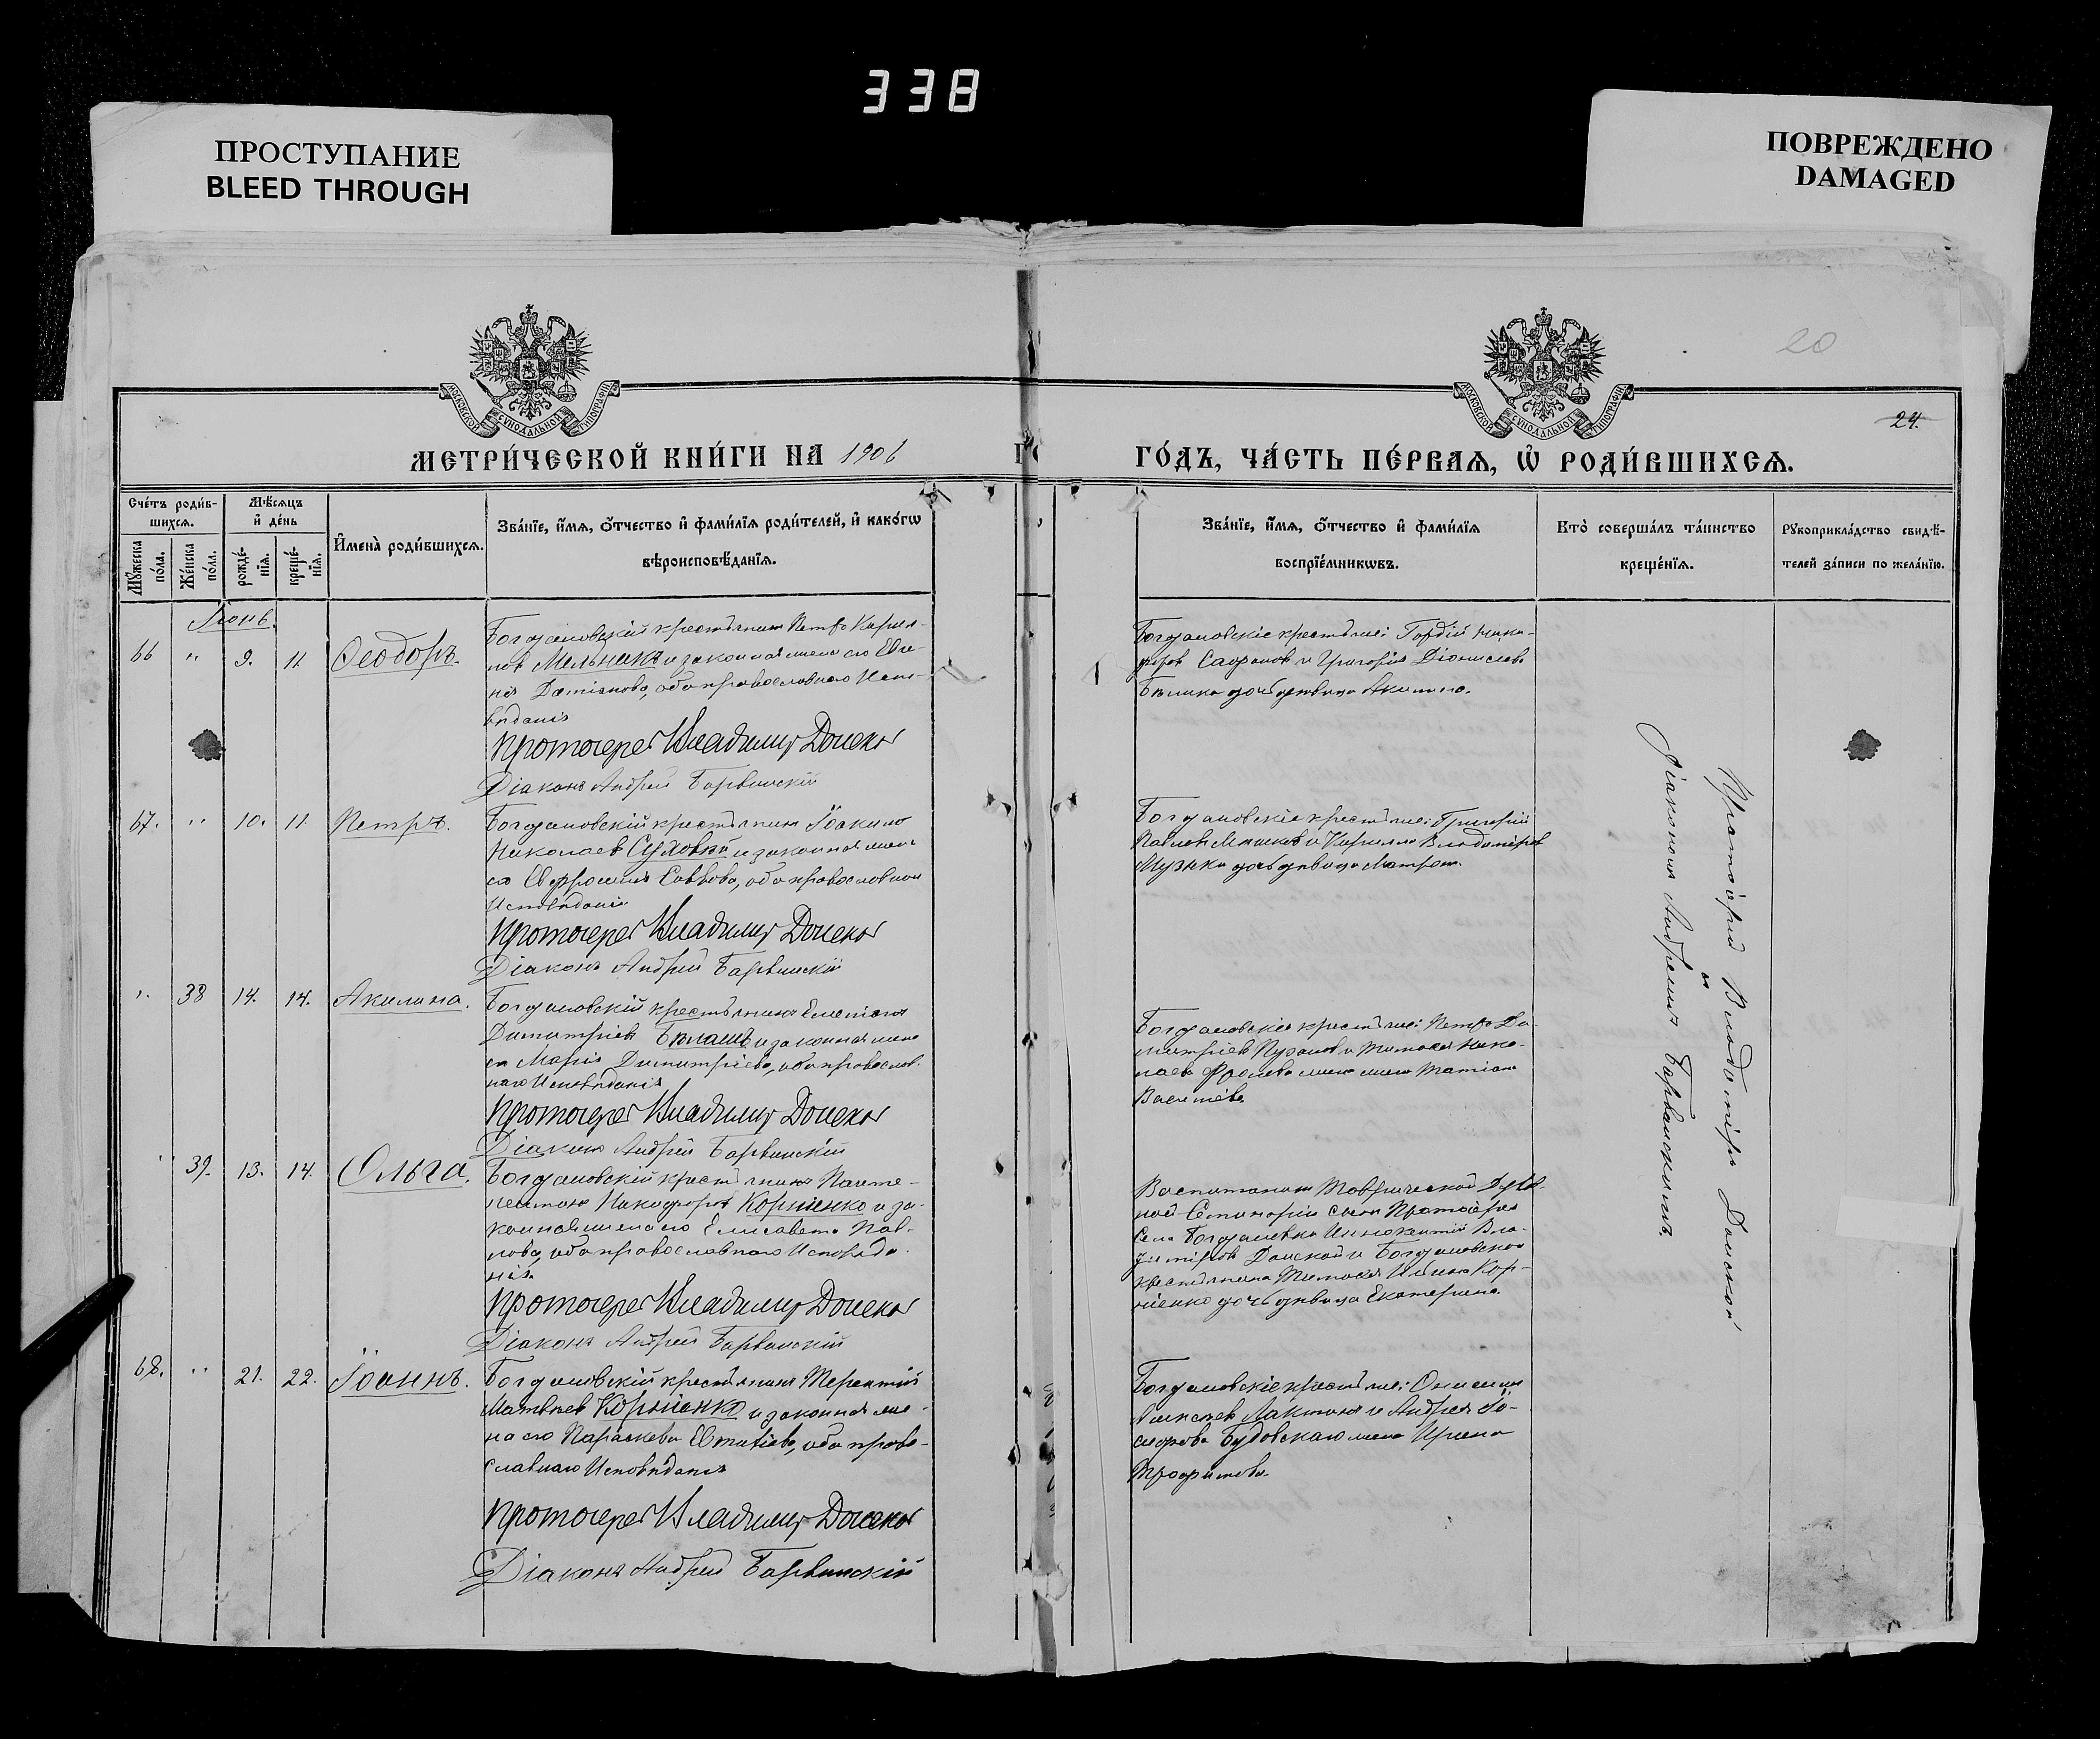 338
ПРОСТУПАНИЕ
BLEED THROUGH
ПОВРЕЖДЕНО
DAMAGED
20
24.
МОСКОВСКОЙ СѴНОДАЛЬНОЙ ТИПОГРАФІИ
МОСКОВСКОЙ СѴНОДАЛЬНОЙ ТИПОГРАФІИ
МЕТРИ́ЧЕСКОЙ КНИ́ГИ НА 1906
ГО́ДЪ, ЧА́СТЬ ПЕ́РВАЯ, Ѡ РОДИ́ВШИХСЯ.
Сче́тъ роди́в-
шихся.
Мꙋжеска по́ла.
Же́нска по́ла.
Мѣ́сяцъ
и҆ де́нь
рожде́-
нїя.
креще́-
нїя.
И҆мена̀ роди́вшихся.
Зва́нїе, и҆́мя, о҆́тчество и҆ фами́лїя роди́телей, и҆ како́гѡ
вѣроисповѣ́данїя.
Зва́нїе, и҆́мя, о҆́тчество и҆ фами́лїя
воспрїе́мникѡвъ.
Кто̀ соверша́лъ та́инство
креще́нїя.
Рꙋкоприкла́дство свидѣ́-
телей за́писи по жела́нїю.
Іюнь.
66 " 9. 11. Ѳеодоръ.
Богдановскій крестьянинъ Петръ Кирил-
ловъ Мельникъ и законная жена его Евге-
нія Даміанова, оба православнаго Испо-
вѣданія
Протоіерей Владимир Донской
Діаконъ Андрей Барвинскій
Богдановскіе крестьяне: Гордій Ники-
форовъ и Григорія Діонисіева
дочь дѣвица Акилина.
67. " 10. 11. Петръ.
Богдановскій крестьянинъ Іоакимъ
Николаевъ Суховій и законная жена
его Евфросинія Саввова, оба православнаго
Исповѣданія
Протоіерей Владимир Донской
Діаконъ Андрей Барвинскій
Богдановскіе крестьяне: Григорій
Павловъ и Кирилла Владимірова
Музыки дочь дѣвица Матрона.
" 38 14. 14. Акилина.
Богдановскій крестьянинъ
Димитріевъ Бѣлашъ и законная жена
его Марія Димитріева, оба православ-
наго Исповѣданія
Протоіерей Владимир Донской
Діаконъ Андрей Барвинскій
Богдановскіе крестьяне: Петръ Ди-
митріевъ и Тимоѳея Нико-
лаева жена Татіана
Васильева
" 39. 13. 14. Ольга.
Богдановскій крестьянинъ Панте-
леимонъ Никифоровъ Корніенко и за-
конная жена его Елисавета Пав-
лова, оба православнаго Исповѣда-
нія.
Протоіерей Владимир Донской
Діаконъ Андрей Барвинскій
Воспитанникъ Таврической Духов-
ной Семинаріи сынъ Протоіерея
Села Богдановки Иннокентій Вла-
диміровъ Донской и Богдановскаго
крестьянина Тимоѳея Кор-
ніенко дочь дѣвица Екатерина.
68. " 21. 22. Іоаннъ.
Богдановскій крестьянинъ Терентій
Матвѣевъ Корніенко и законная же-
на его Параскева Евтихіева, оба право-
славнаго Исповѣданія
Протоіерей Владимир Донской
Діаконъ Андрей Барвинскій
Богдановскіе крестьяне: Онисимъ
Алексѣевъ и Андрея Іо-
сифова Будовскаго жена Ирина
Трофимова.
Протоіерей Владиміръ Донской
съ
Діакономъ Андреемъ Барвинскимъ.